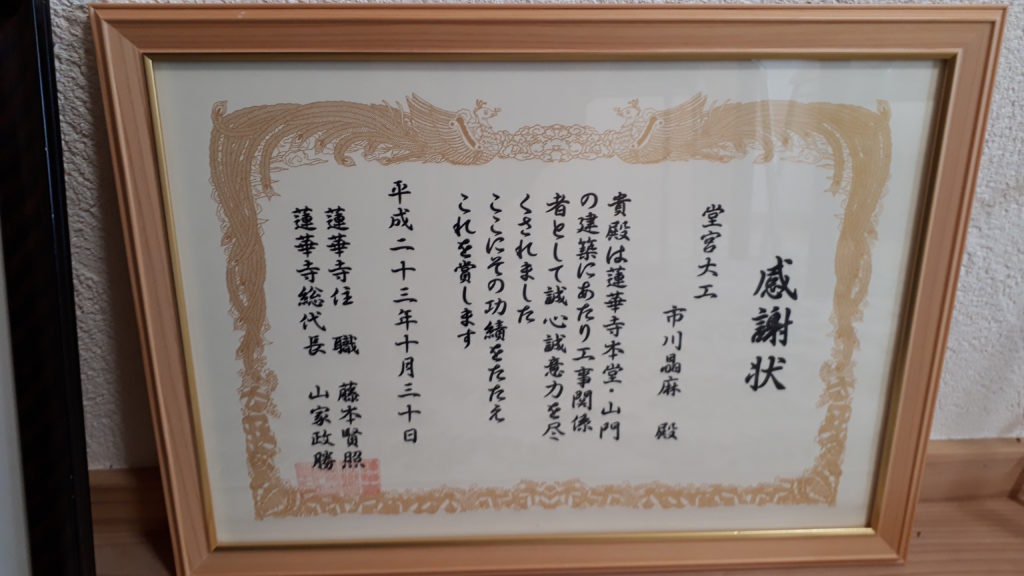 感謝状
堂宮大工
市川晶麻 殿
貴殿は蓮華寺本堂・山門
の建築にあたり工事関係
者として誠心誠意力を尽
くされました
ここにその功績をたたえ
これを賞します
平成二十三年十月三十日
蓮華寺住職 藤本賢照
蓮華寺総代長 山家政勝